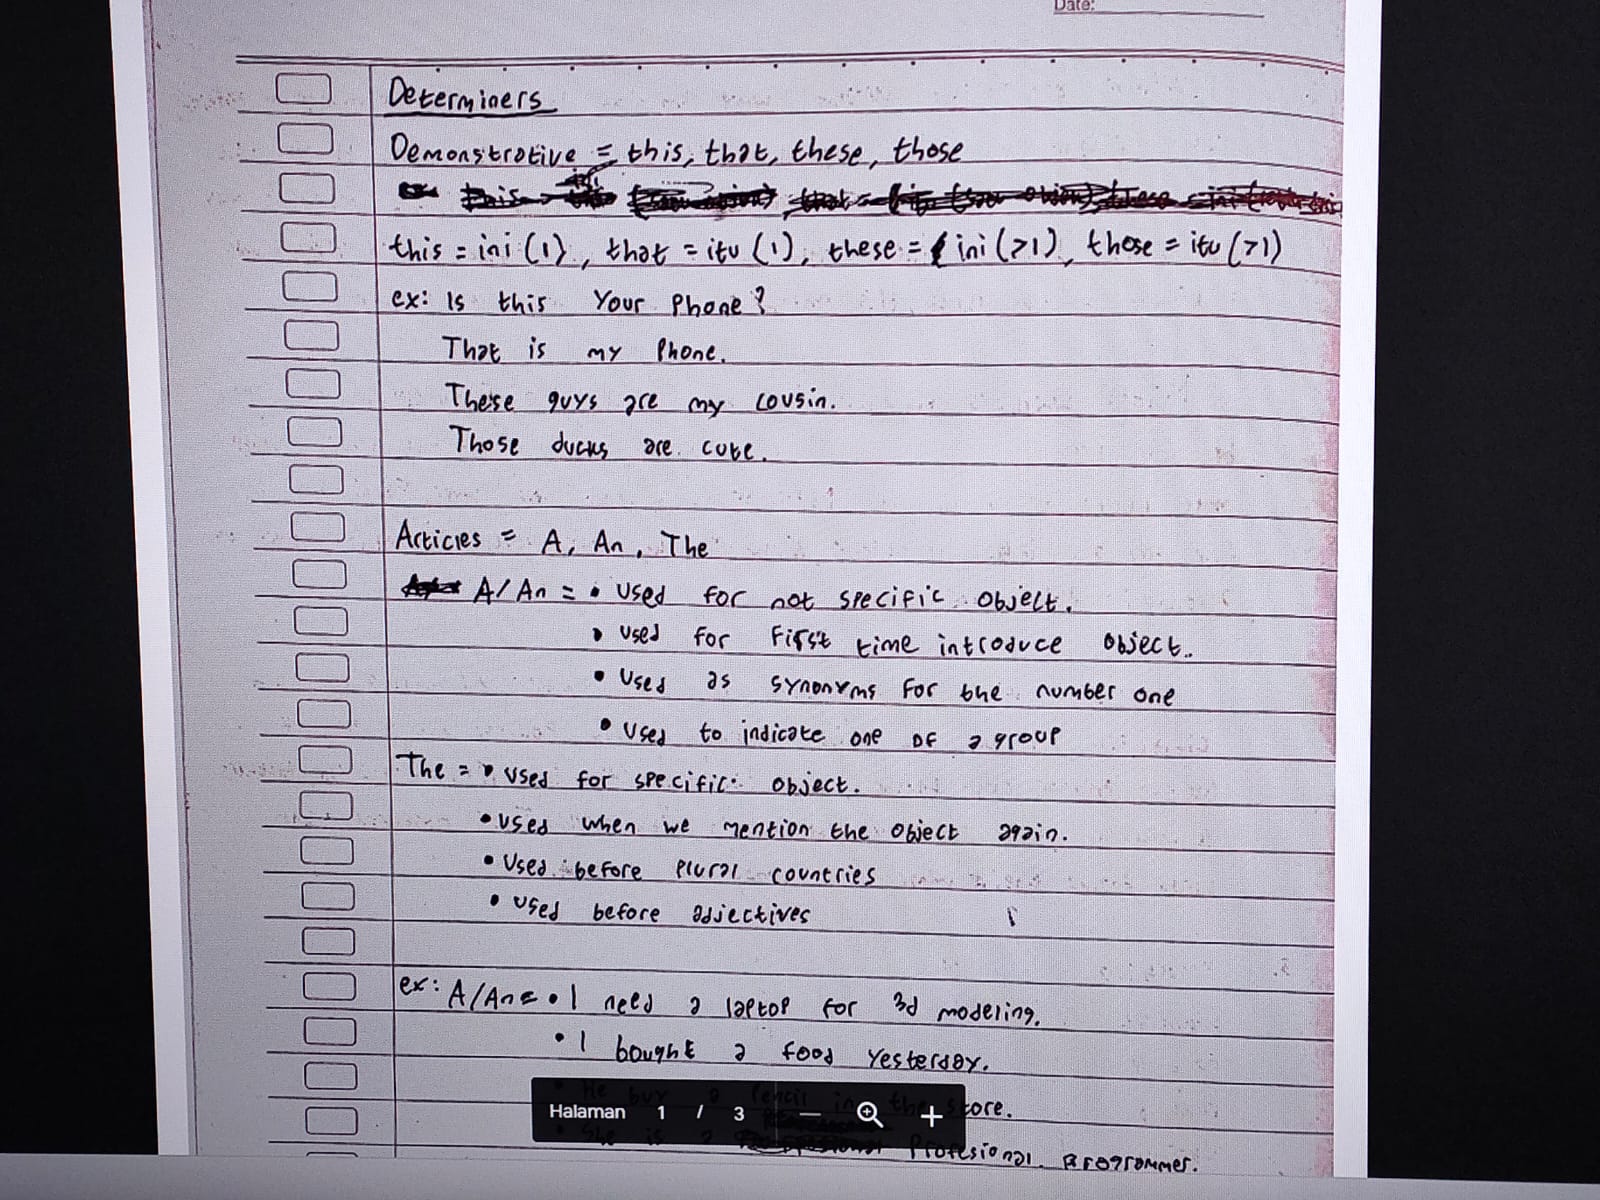 Date:
Determiners
Demonstrative = this, that, these, those
this = ini (1), that = itu (1), these = ini (>1), those = itu (>1)
ex: Is this Your Phone?
That is my Phone.
These guys are my cousin.
Those ducks are cute.
Articles = A, An, The
A/An = • Used for not specific object.
• Used for First time introduce object.
• Used as synonyms for the number one
• Used to indicate one of a group
The = • Used for specific object.
• Used when we mention the object again.
• Used before plural countries
• Used before adjectives
ex: A/An = • I need a laptop for 3d modeling.
• I bought a food Yesterday.
• He buy a Pencil in the store.
• She is a Profesional Programmer.
Halaman 1 / 3 — +